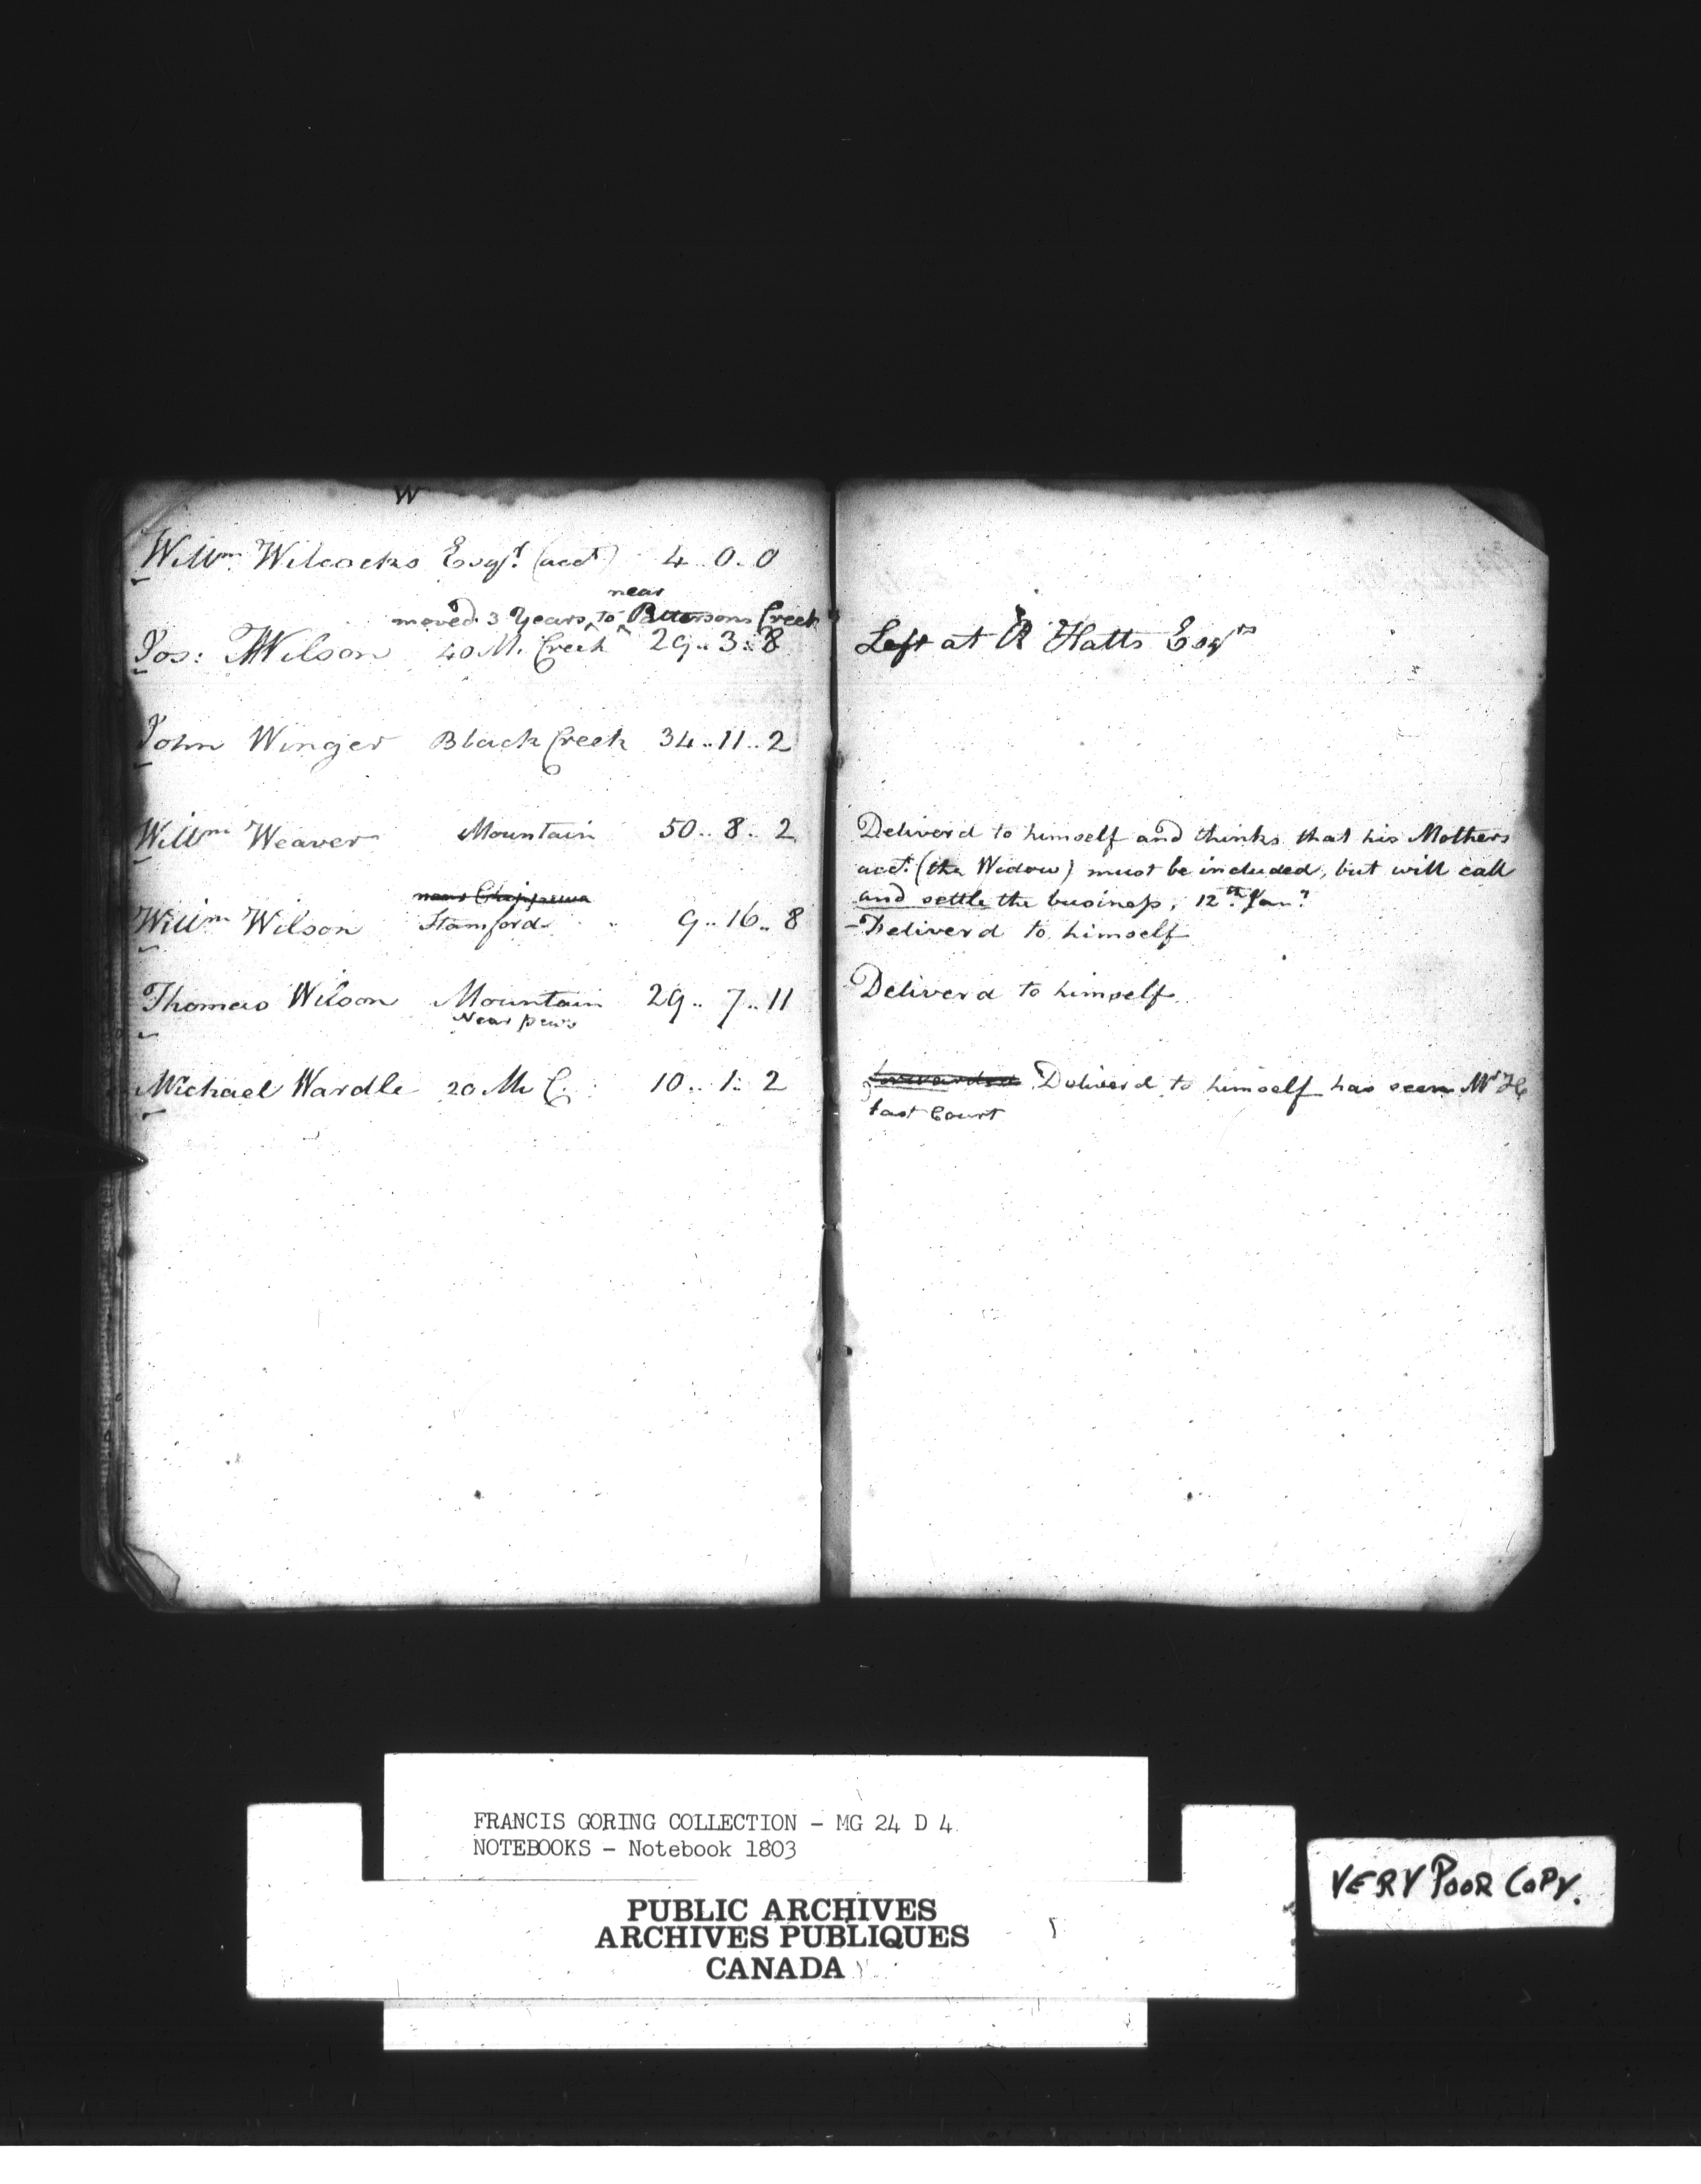 W
Willm Wilcocks Esqr. (acct) 4..0..0
near
moved 3 Years, to Pattersons Creek
Jos: Wilson 40 M. Creek 29..3..8
John Winger Black Creek 34..11..2
Willm Weaver Mountain 50..8..2
near Chippewa
Willm Wilson Stamford 9..16..8
Thomas Wilson Mountain 29..7..11
Near
Michael Wardle 20 M C. 10..1..2
Left at R Hatts Esqrs
Deliverd to himself and thinks that his Mothers
acct. (the Widow) must be included, but will call
and settle the business, 12th Jany
-Deliverd to himself
Deliverd to himself
forwarded Deliverd to himself has seen Mr H
last Court
FRANCIS GORING COLLECTION - MG 24 D 4
NOTEBOOKS - Notebook 1803
PUBLIC ARCHIVES
ARCHIVES PUBLIQUES
CANADA
VERY POOR COPY.